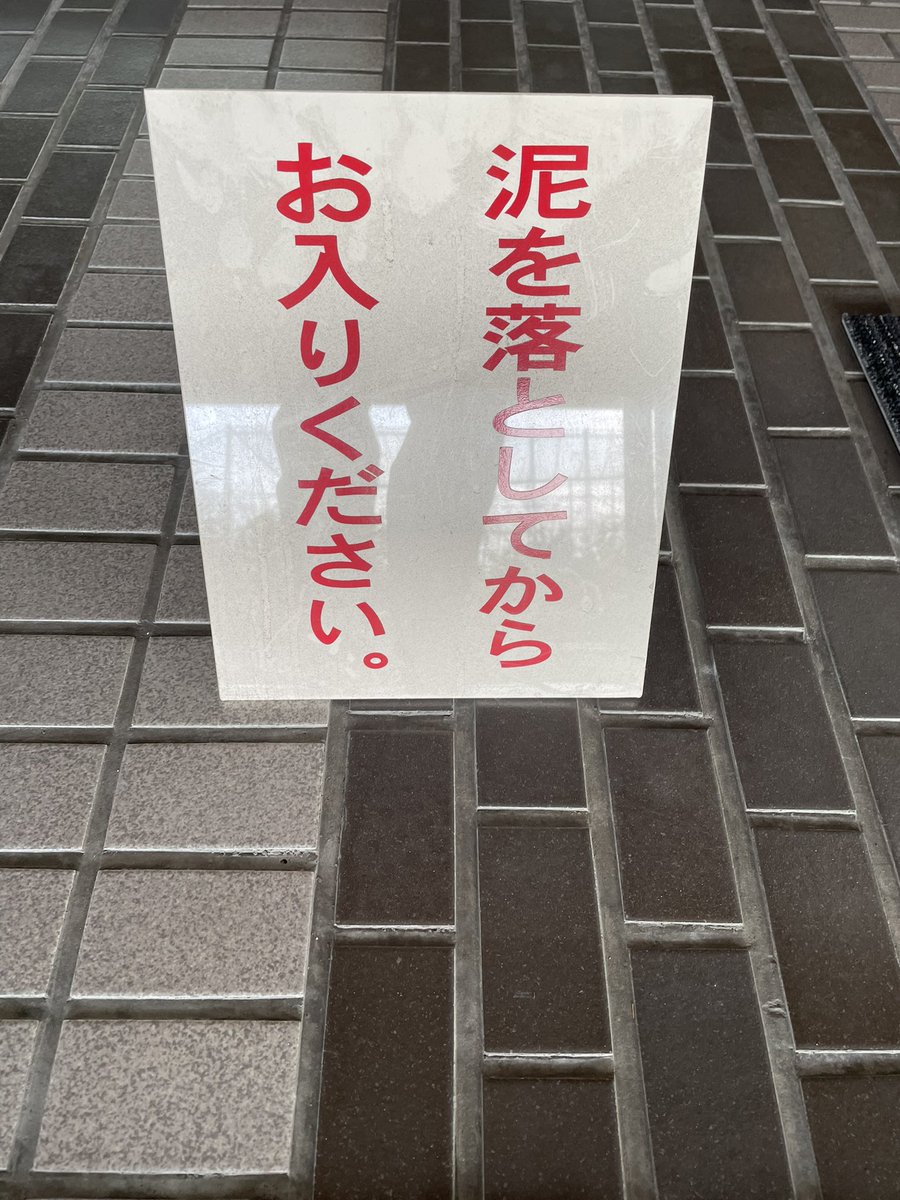 泥を落としてから
お入りください。